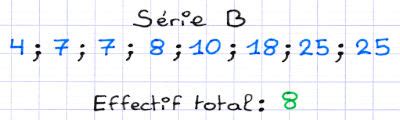 Série B
4 ; 7 ; 7 ; 8 ; 10 ; 18 ; 25 ; 25
Effectif total : 8